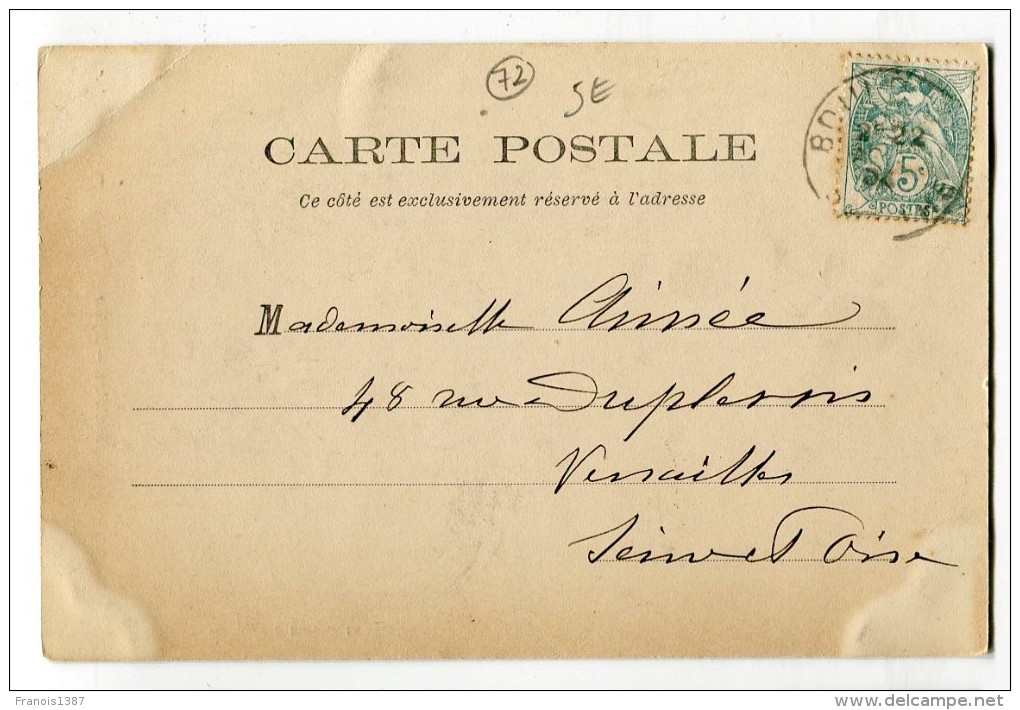 72
SE
CARTE POSTALE
Ce côté est exclusivement réservé à l'adresse
22
5c
POSTES
Mademoiselle Aimée
48 rue Duplessis
Versailles
Seine et Oise
Franois1387
delcampe.net